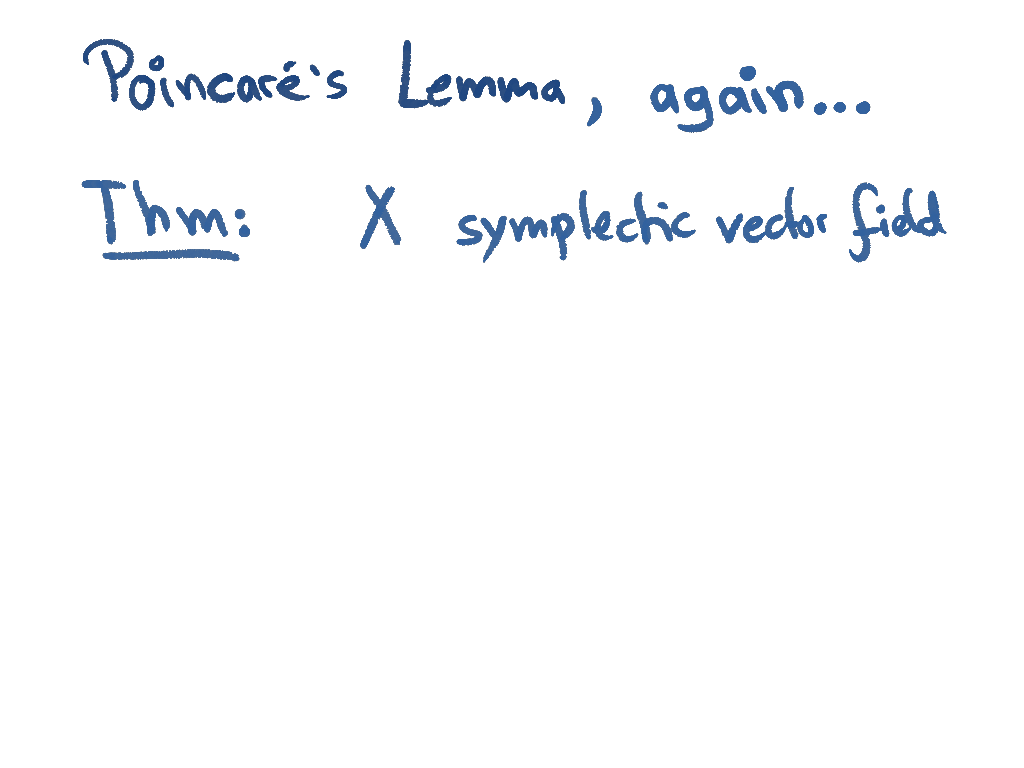 Poincaré's Lemma, again...
Thm: X symplectic vector field